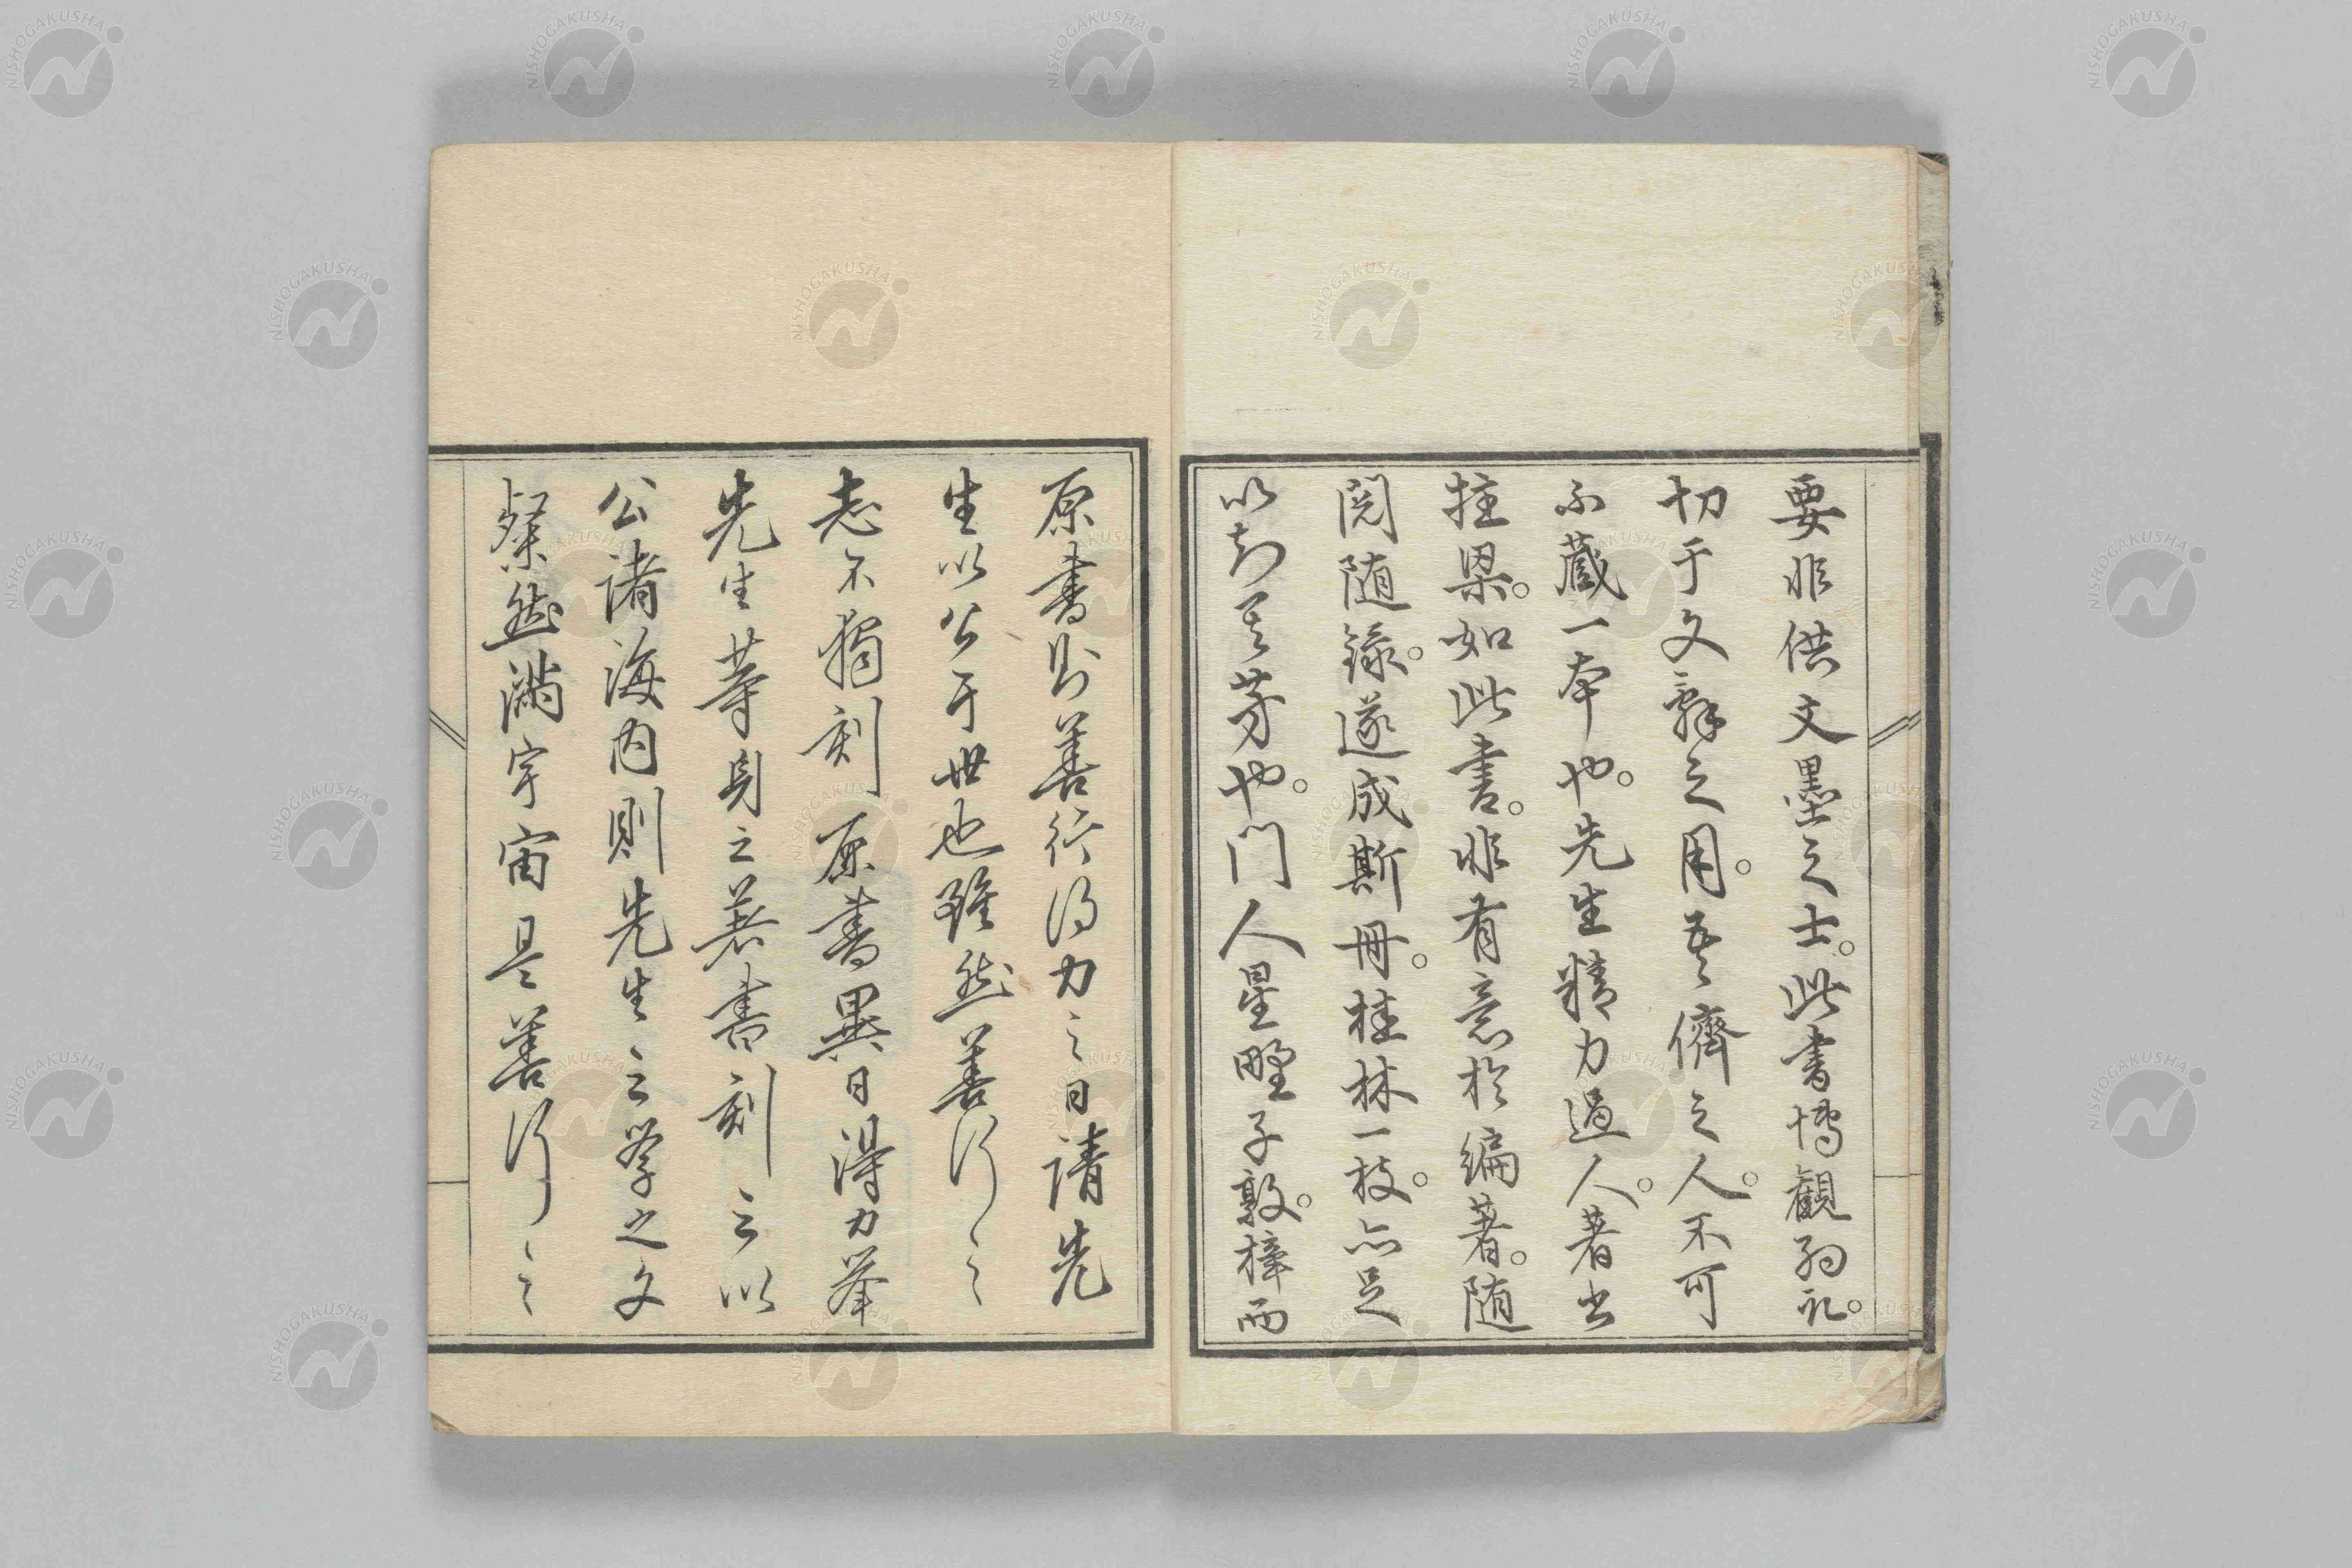 要非供文墨之士。此書博観強記。
切于文辞之用。吾儕之人。不可
不蔵一本也。先生精力過人。著书
拄梁。如此書。非有意於編著。随
閲随録。遂成斯冊。桂林一枝。亦足
以知其芳也。門人星野子敦。梓而
原書則善行得力之日請先
生以公于世也雖然善行之
志不独刻原書異日得力挙
先生等身之著書刻之以
公諸海内則先生之学之文
粲然満宇宙是善行之
NISHOGAKUSHA